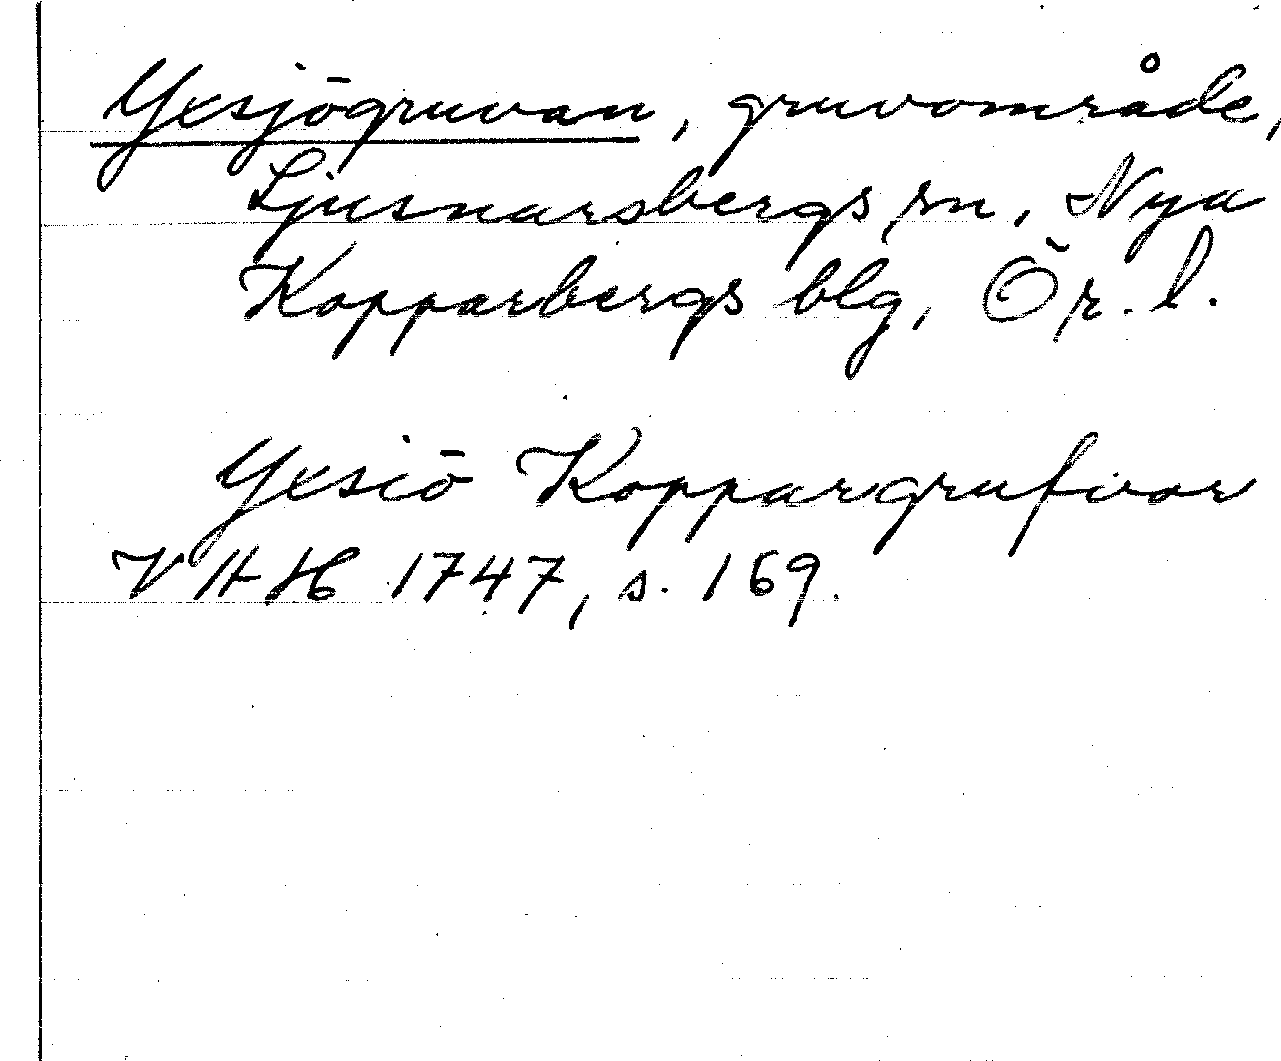 Yxsjögruvan, gruvområde,
Ljusnarsbergs sn, Nya
Kopparbergs blg, Ör. l.
Yxsiö Koppargrufvor
VAH 1747, s. 169.